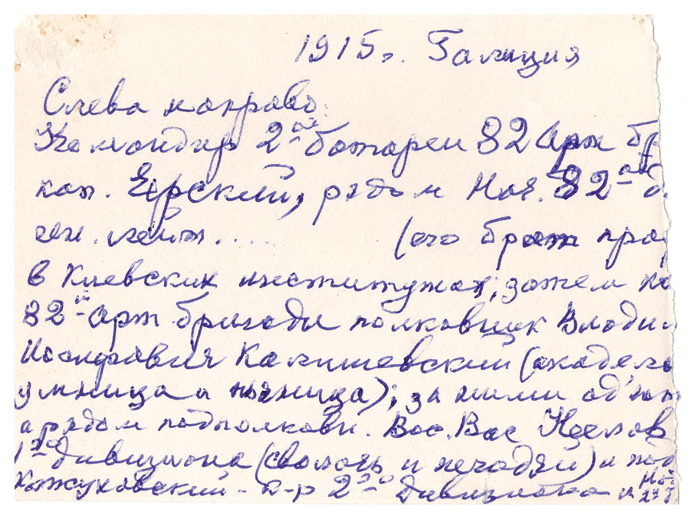 1915г. Галиция
Слева направо:
Командир 2ой батареи 32 Арт бр
кап. Ерский, рядом Нач. 32ой д.
ген. лейт..... (его брат пра
в Киевских институтах, затем
32ой Арт бригады полковник Влади
Иосифович Калишевский (академ
умница и пьяница); за ними ад'ют
а рядом подполковн. Вас. Вас
1го дивизиона (сволочь и негодяй) и под
Кожуховский - к-р 2го дивизиона и